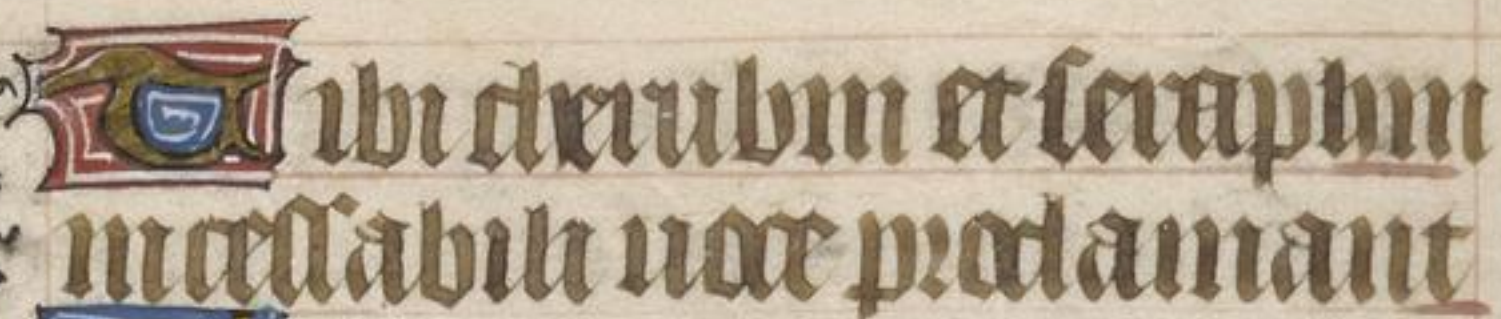 Tibi cherubin et seraphin
incessabili uoce proclamant